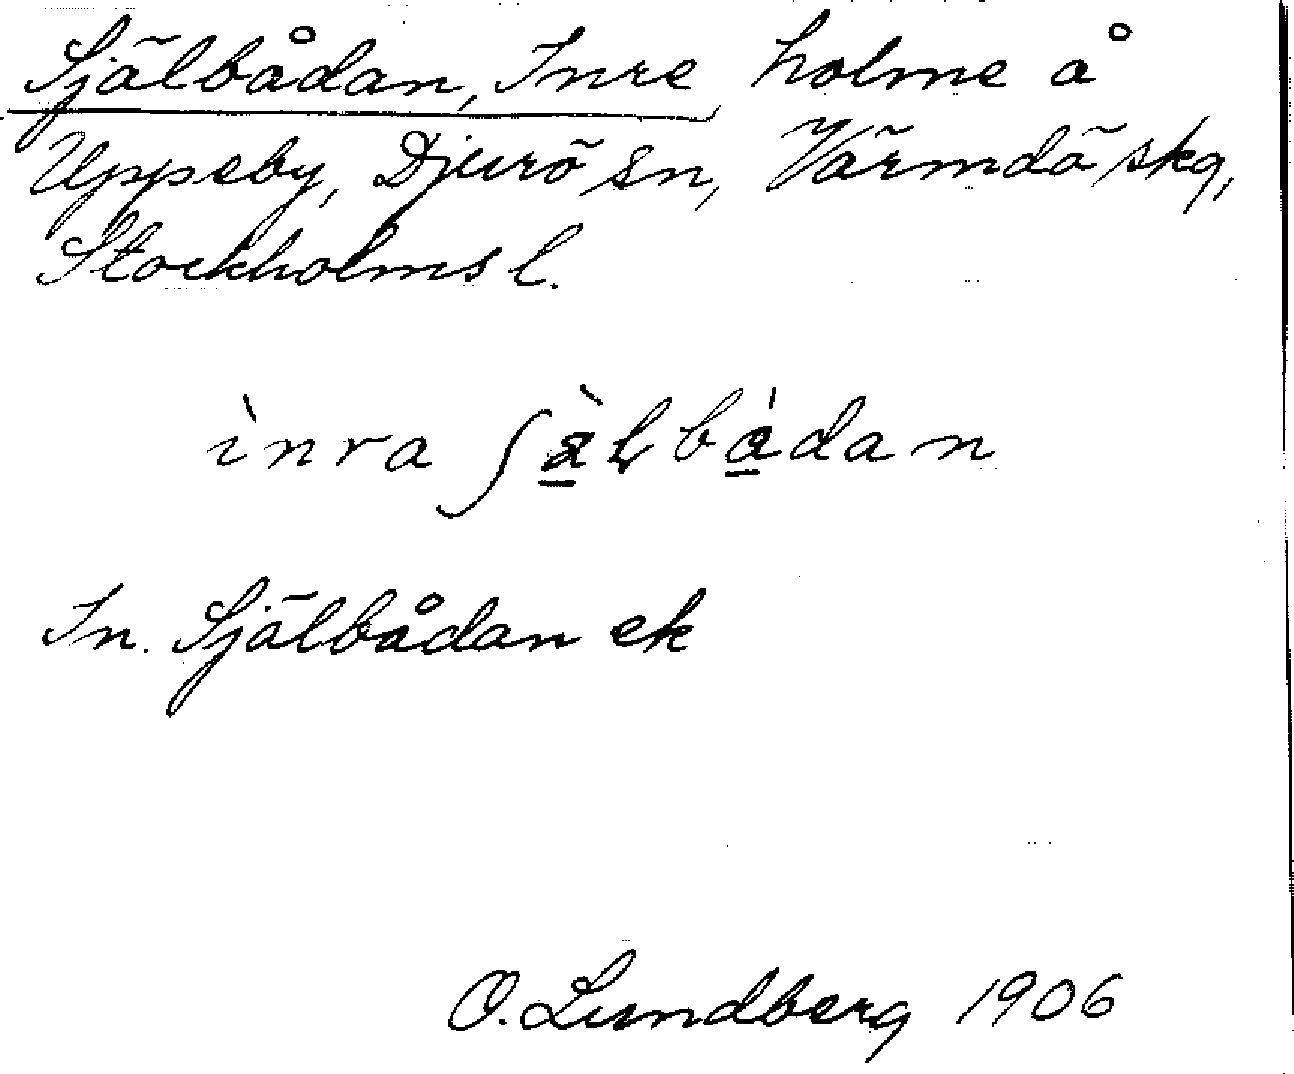 Själbådan, Inre holme å
Uppeby, Djurö sn, Värmdö skg,
Stockholms l.
ìnra ʃä̀lbådan
In. Själbådan ek
O. Lundberg 1906